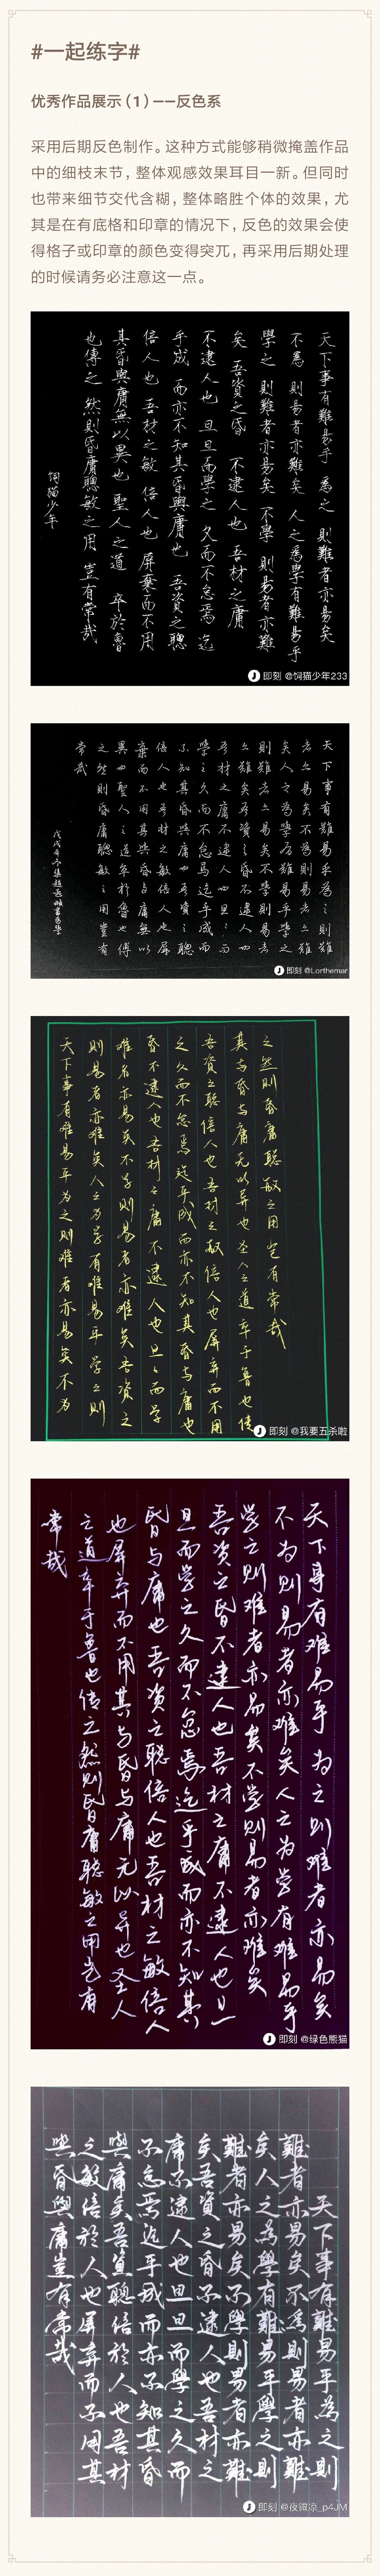 #一起练字#
优秀作品展示（1）——反色系
采用后期反色制作。这种方式能够稍微掩盖作品
中的细枝末节，整体观感效果耳目一新。但同时
也带来细节交代含糊，整体略胜个体的效果，尤
其是在有底格和印章的情况下，反色的效果会使
得格子或印章的颜色变得突兀，再采用后期处理
的时候请务必注意这一点。
天下事有難易乎 為之 則難者亦易矣
不為 則易者亦難矣 人之為學有難易乎
學之 則難者亦易矣 不學 則易者亦難
矣 吾資之昏 不逮人也 吾材之庸
不逮人也 旦旦而學之 久而不怠焉 迄
乎成 而亦不知其昏與庸也 吾資之聰
倍人也 吾材之敏 倍人也 屏棄而不用
其昏與庸無以異也 聖人之道 卒於魯
也傳之 然則昏庸聰敏之用 豈有常哉
饲猫少年
即刻 @饲猫少年233
天下事有難易乎為之則難
者亦易矣不為則易者亦難
矣人之為學有難易乎學之
則難者亦易矣不學則易者
亦難矣吾資之昏不逮人也
吾材之庸不逮人也旦旦而
學之久而不怠焉迄乎成而
不知其昏與庸也吾資之聰
倍人也吾材之敏倍人也屏
棄而不用其與昏與庸無以
異也聖人之道卒於魯也傳
之然則昏庸聰敏之用豈有
常哉
即刻 @Lorthemar
天下事有难易乎为之则难者亦易矣不为
则易者亦难矣人之为学有难易乎学之则
难者亦易矣不学则易者亦难矣吾资之
昏不逮人也吾材之庸不逮人也旦旦而学
之久而不怠焉迄乎成而亦不知其昏与庸也
吾资之聪倍人也吾材之敏倍人也屏弃而不用
其与昏与庸无以异也圣人之道卒于鲁也传
之然则昏庸聪敏之用岂有常哉
即刻 @我要五杀啦
天下事有难易乎为之则难者亦易矣
不为则易者亦难矣人之为学有难易乎
学之则难者亦易矣不学则易者亦难矣
吾资之昏不逮人也吾材之庸不逮人也旦
旦而学之久而不怠焉迄乎成而亦不知其
昏与庸也吾资之聪倍人也吾材之敏倍人
也屏弃而不用其与昏与庸无以异也圣人
之道卒于鲁也传之然则昏庸聪敏之用岂有
常哉
即刻 @绿色熊猫
天下事有難易乎為之則
難者亦易矣不為則易者亦難
矣人之為學有難易乎學之則
難者亦易矣不學則易者亦難
矣吾資之昏不逮人也吾材之
庸不逮人也旦旦而學之久而
不怠焉迄乎成而亦不知其昏
與庸矣吾資聰倍於人也吾材
之敏倍於人也屏弃而不用其
與昏與庸豈有常哉
即刻 @夜微凉_p4JM